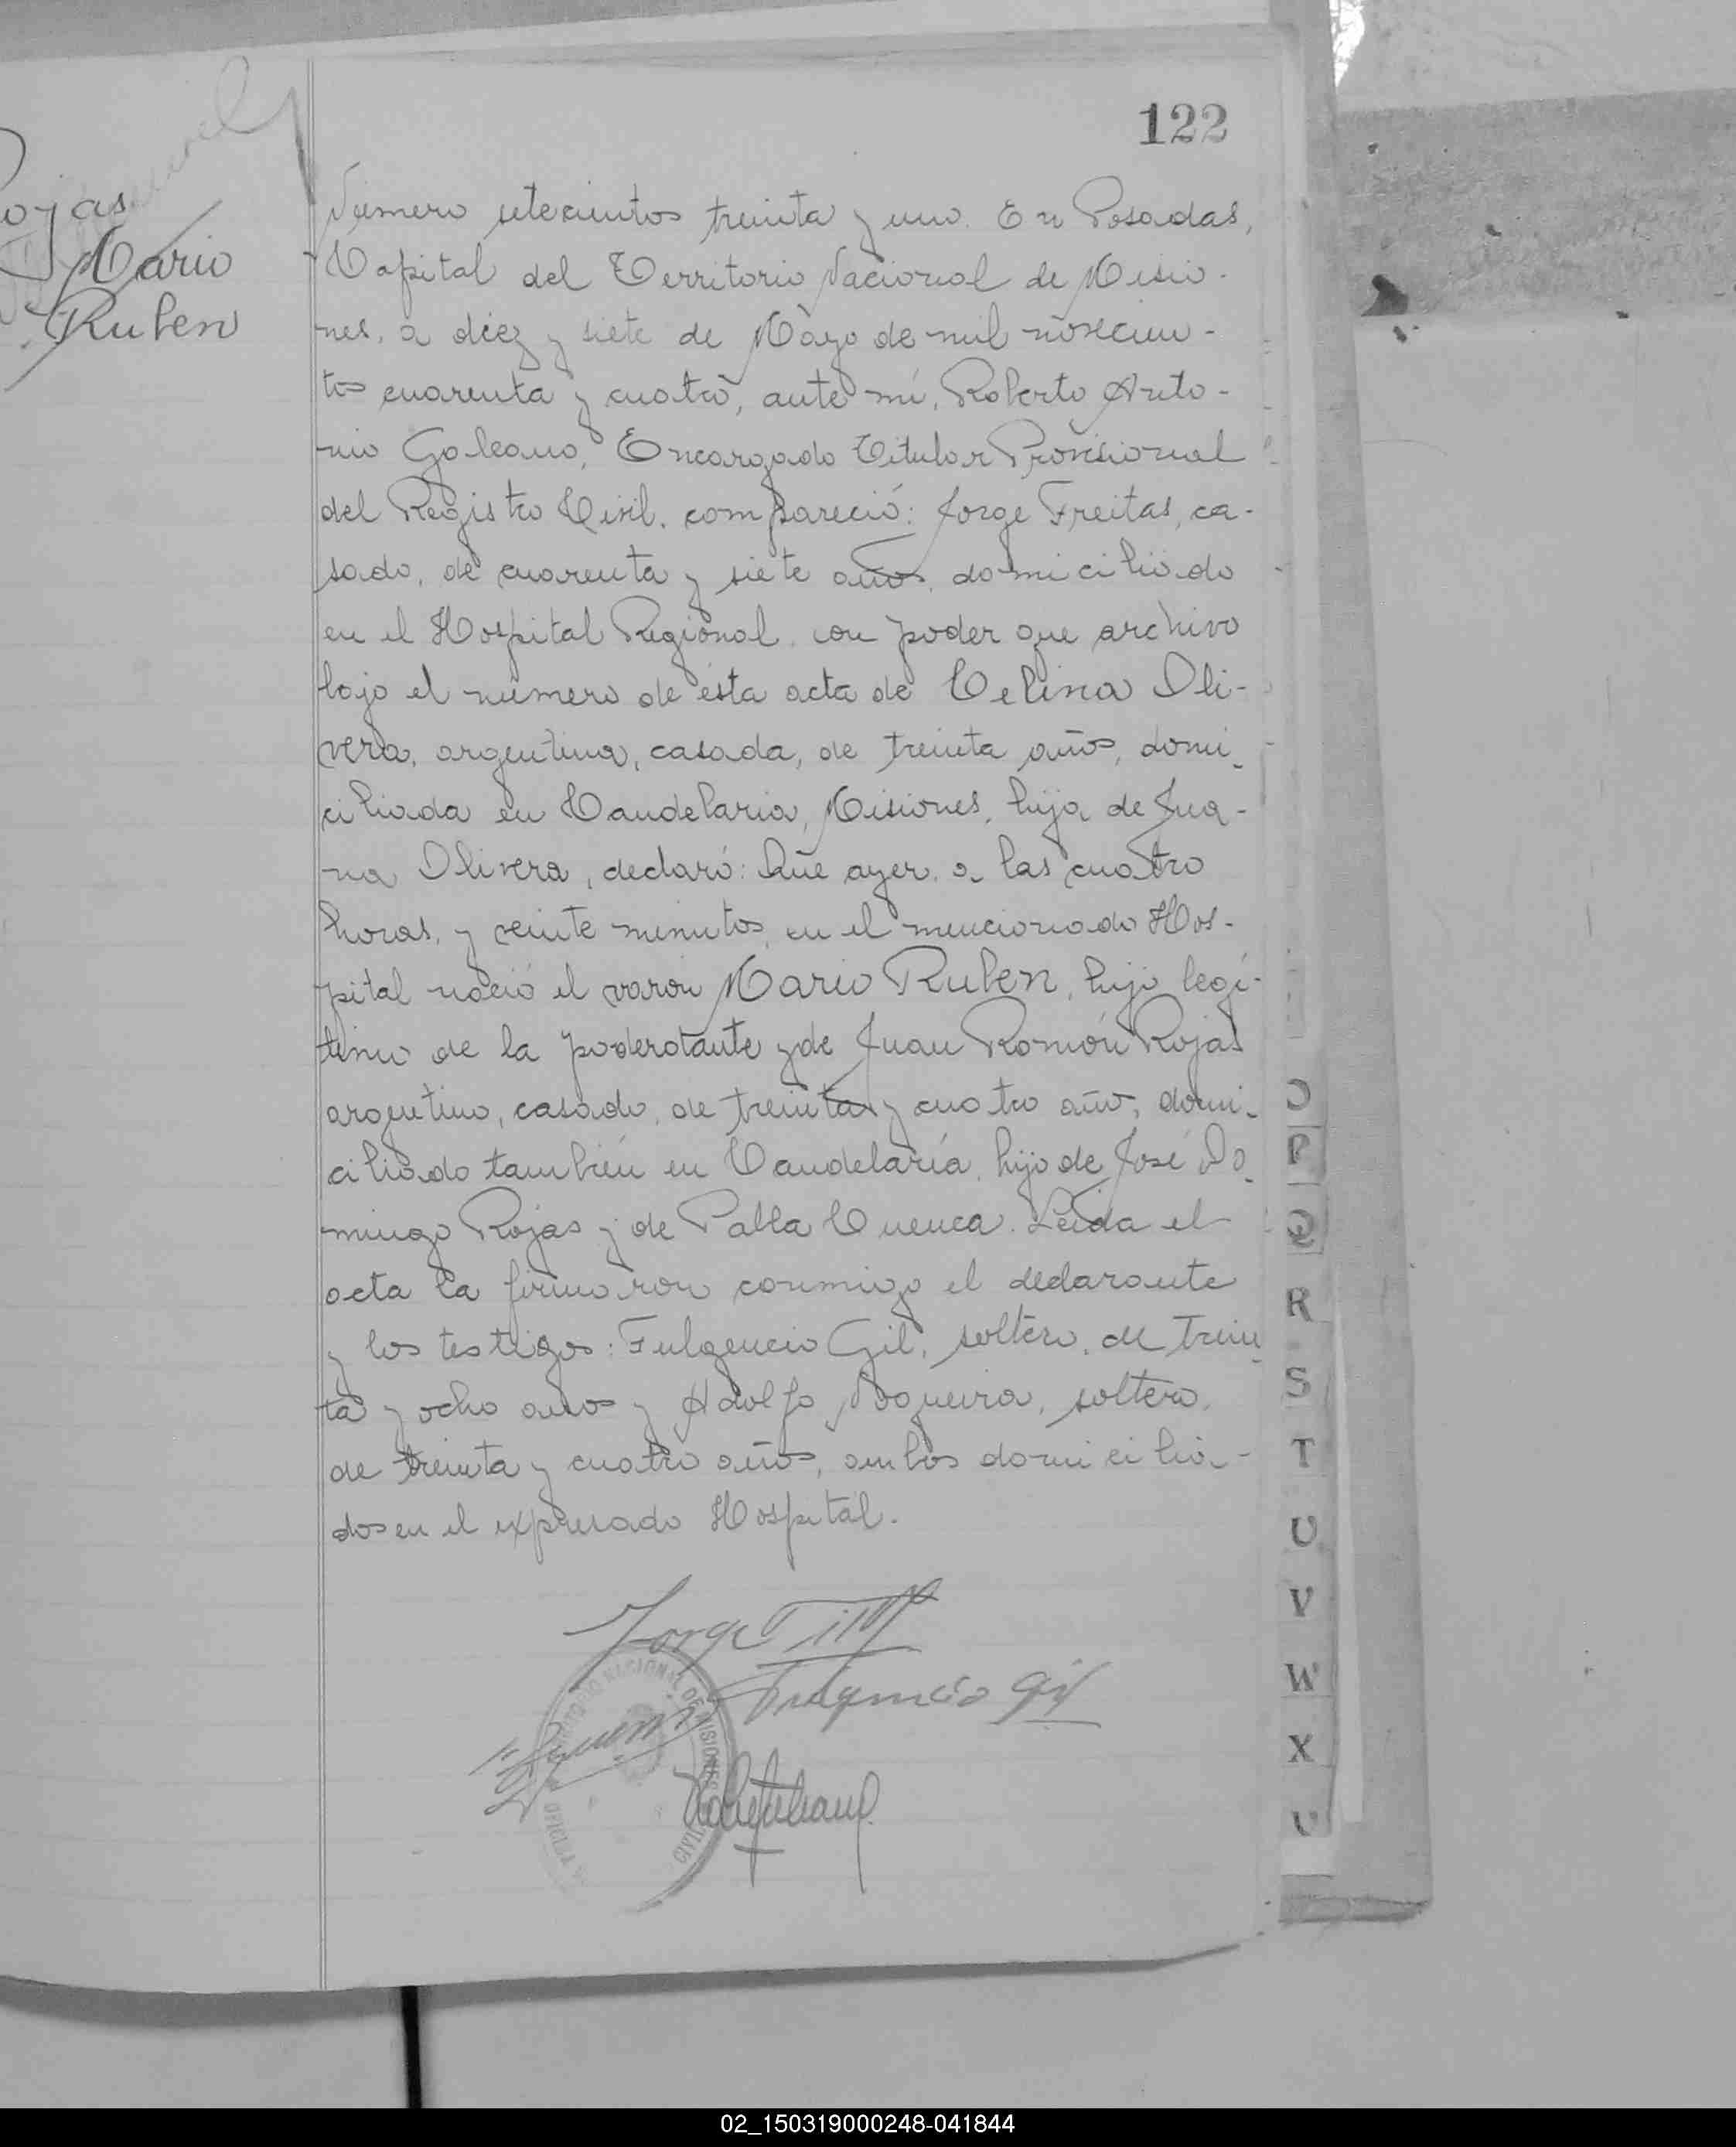 122
Rojas
Mario
Ruben
Número setecientos treinta y uno. En Posadas,
Capital del Territorio Nacional de Misio-
nes, a diez y siete de Mayo de mil novecien-
tos cuarenta y cuatro, ante mí, Roberto Anto-
nio Galeano, Encargado Titular Provisional
del Registro Civil, compareció: Jorge Freitas, ca-
sado, de cuarenta y siete años, domiciliado
en el Hospital Regional, con poder que archivo
bajo el número de ésta acta de Celina Oli-
vera, argentina, casada, de treinta años, domi-
ciliada en Candelaria, Misiones, hija de Jua-
na Olivera, declaró: Que ayer, a las cuatro
horas, y veinte minutos, en el mencionado Hos-
pital nació el varón Mario Ruben, hijo legí-
timo de la poderdante y de Juan Ramón Rojas
argentino, casado, de treinta y cuatro años, domi-
ciliado también en Candelaria, hijo de José Do-
mingo Rojas y de Pabla Cuenca. Leída el
acta la firmaron conmigo el declarante
y los testigos: Fulgencio Gil, soltero, de trein-
ta y ocho años y Adolfo Nogueira, soltero,
de treinta y cuatro años, ambos domicilia-
dos en el expresado Hospital.
Jorge
Fulgencio Gil
TERRITORIO NACIONAL DE MISIONES
CIVIL
O
P
Q
R
S
T
U
V
W
X
02_150319000248-041844